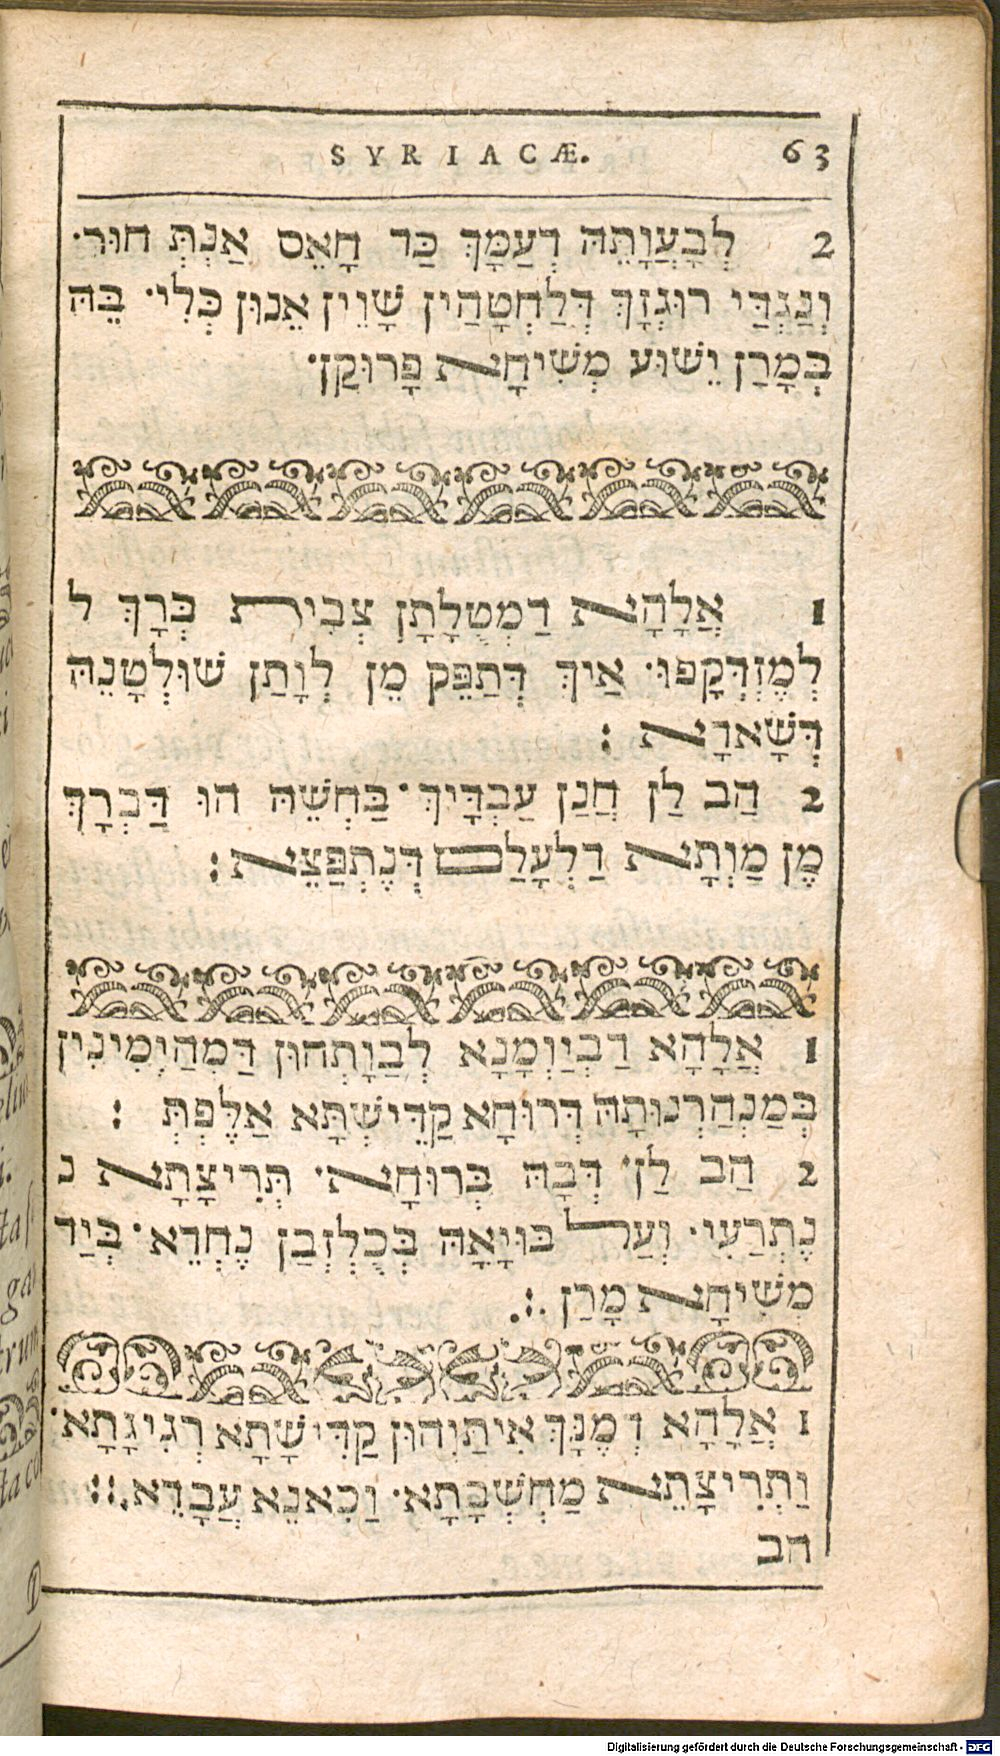 SYRIACÆ. 63
2 לְבָעֲוָתֵהּ דְעַמָּךְ כַּד חָאֵס אַנְתְּ חוּר׃
וְנַגְּדַי רוּגְזָךְ דְּלַחְטָהַין שָׁוֵין אֵנוּן כְּלִי׃ בֵּהּ
בְּמָרַן יֵשׁוּע מְשִׁיחָא פָּרוּקַן׃
1 אֲלָהָא דַמְטֻלָתָן צְבִית בְּרָךְ ל
לְמֶזְדְּקָפוּ׃ אַיךְ דְּתַפֵּק מֵן לְוָתַן שׁוּלְטָנֵהּ
דְּשָׁאדָא :
2 הַב לַן חֲנַן עַבְדָּיךְ׃ בַּחְשֵׁהּ הוּ דַּבְרָךְ
מֶן מַוְתָא דַלְעָלַם דְּנֶתְפַּצֵא :
1 אֲלָהָא דַבְיַוְמָנָא לְבַוָתְהוּן דַּמְהַיְמִינִין
בְּמַנְהַרְנוּתָהּ דְּרוּחָא קַדֵּישְׁתָּא אַלֶּפְתְּ :
2 הַב לַן׃ דְּבָהּ בְּרוּחָא׃ תְּרִיצָתָא נ
נֶתְרַעִי׃ וְעַל בּוּיָאָהּ בְּכֻלְזְבַן נֶחְדֵא׃ בְּיַד
מְשִׁיחָא מָרַן .:.
1 אֲלָהָא דְמֶנָּךְ אִיתַוִהוּן קַדִּישָׁתָא רְגִיגָתָא׃
וַתְרִיצָתֵא מַחְשְׁבָתָא׃ וַכִאנֵא עֲבָדֵא.::
הב
Digitalisierung gefördert durch die Deutsche Forschungsgemeinschaft - DFG